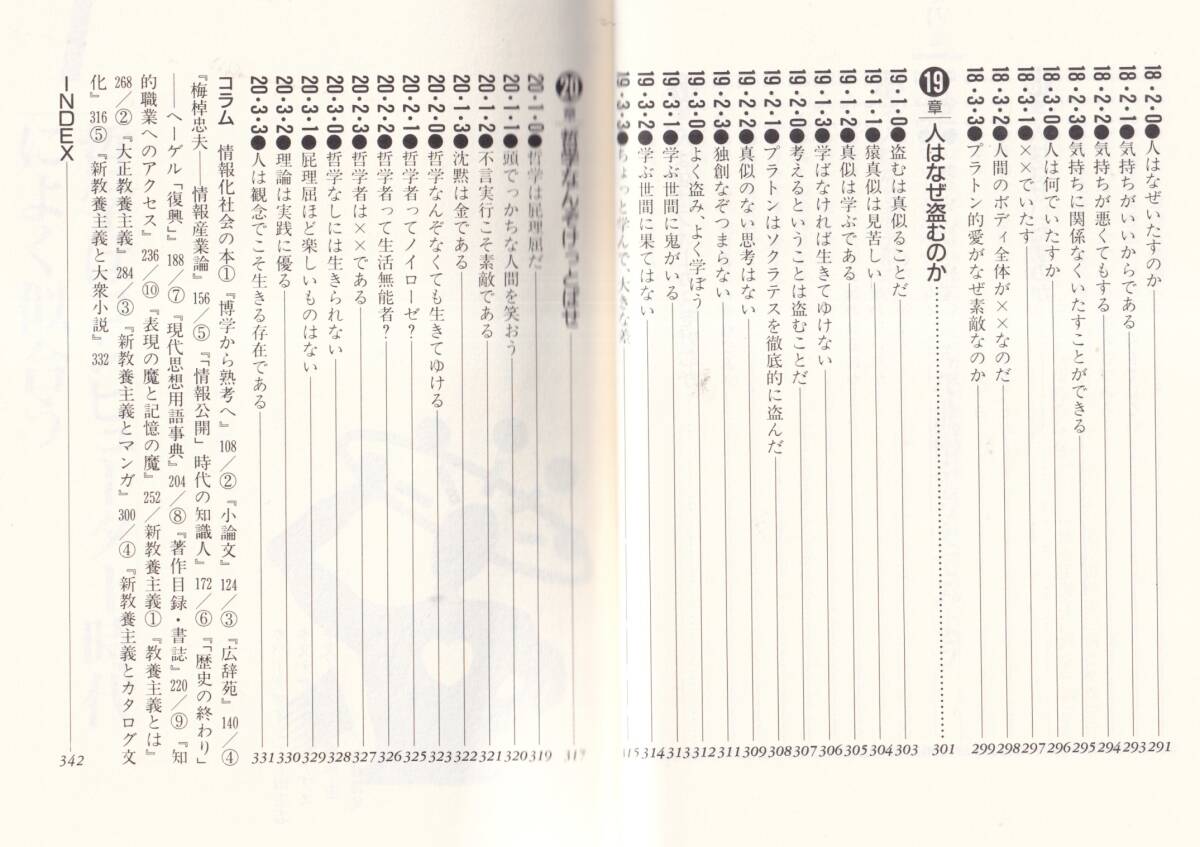 18・2・0●人はなぜいたすのか 291
18・2・1●気持ちがいいからである 293
18・2・2●気持ちが悪くてもする 294
18・2・3●気持ちに関係なくいたすことができる 295
18・3・0●人は何でいたすか 296
18・3・1●××でいたす 297
18・3・2●人間のボディ全体が××なのだ 298
18・3・3●プラトン的愛がなぜ素敵なのか 299
19章 人はなぜ盗むのか 301
19・1・0●盗むは真似ることだ 303
19・1・1●猿真似は見苦しい 304
19・1・2●真似は学ぶである 305
19・1・3●学ばなければ生きてゆけない 306
19・2・0●考えるということは盗むことだ 307
19・2・1●プラトンはソクラテスを徹底的に盗んだ 308
19・2・2●真似のない思考はない 309
19・2・3●独創なぞつまらない 311
19・3・0●よく盗み、よく学ぼう 312
19・3・1●学ぶ世間に鬼がいる 313
19・3・2●学ぶ世間に果てはない 314
19・3・3●ちょっと学んで、大きな差 315
20章 哲学なんぞけっとばせ 317
20・1・0●哲学は屁理屈だ 319
20・1・1●頭でっかちな人間を笑おう 320
20・1・2●不言実行こそ素敵である 321
20・1・3●沈黙は金である 322
20・2・0●哲学なんぞなくても生きてゆける 323
20・2・1●哲学者ってノイローゼ? 325
20・2・2●哲学者って生活無能者? 326
20・2・3●哲学者は××である 327
20・3・0●哲学なしには生きられない 328
20・3・1●屁理屈ほど楽しいものはない 329
20・3・2●理論は実践に優る 330
20・3・3●人は観念でこそ生きる存在である 331
コラム 情報化社会の本①『博学から熟考へ』108/②『小論文』124/③『広辞苑』140/④
『梅棹忠夫——情報産業論』156/⑤『「情報公開」時代の知識人』172/⑥『「歴史の終わり」
——ヘーゲル「復興」』188/⑦『現代思想用語事典』204/⑧『著作目録・書誌』220/⑨『知
的職業へのアクセス』236/⑩『表現の魔と記憶の魔』252/新教養主義①『教養主義とは』
268/②『大正教養主義』284/③『新教養主義とマンガ』300/④『新教養主義とカタログ文
化』316⑤『新教養主義と大衆小説』332
INDEX 342